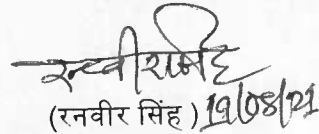 रनवीर सिंह
(रनवीर सिंह) 19/08/21